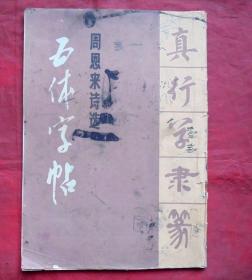 周恩来诗选
五体字帖
真行草隶篆